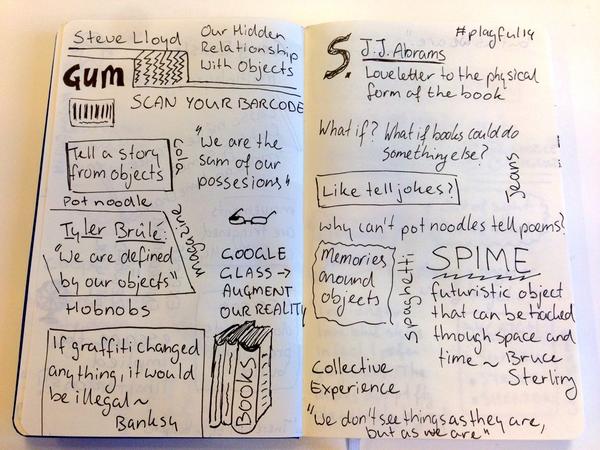 Steve Lloyd
Our Hidden
Relationship
With Objects
GUM
SCAN YOUR BARCODE
Tell a story
from objects
Cola
"We are the
sum of our
possesions"
Pot noodle
Tyler Brûle:
"We are defined
by our objects"
Magazine
GOOGLE
GLASS →
AUGMENT
OUR REALITY
Hobnobs
If graffiti changed
anything, it would
be illegal ~
Banksy
Books
#playful14
S.
J.J. Abrams
Loveletter to the physical
form of the book
What if? What if books could do
something else?
Jeans
Like tell jokes?
why can't pot noodles tell poems?
Memories
around
objects
Spaghetti
SPIME
futuristic object
that can be tracked
through space and
time ~ Bruce
Sterling
Collective
Experience
"We don't see things as they are,
but as we are"